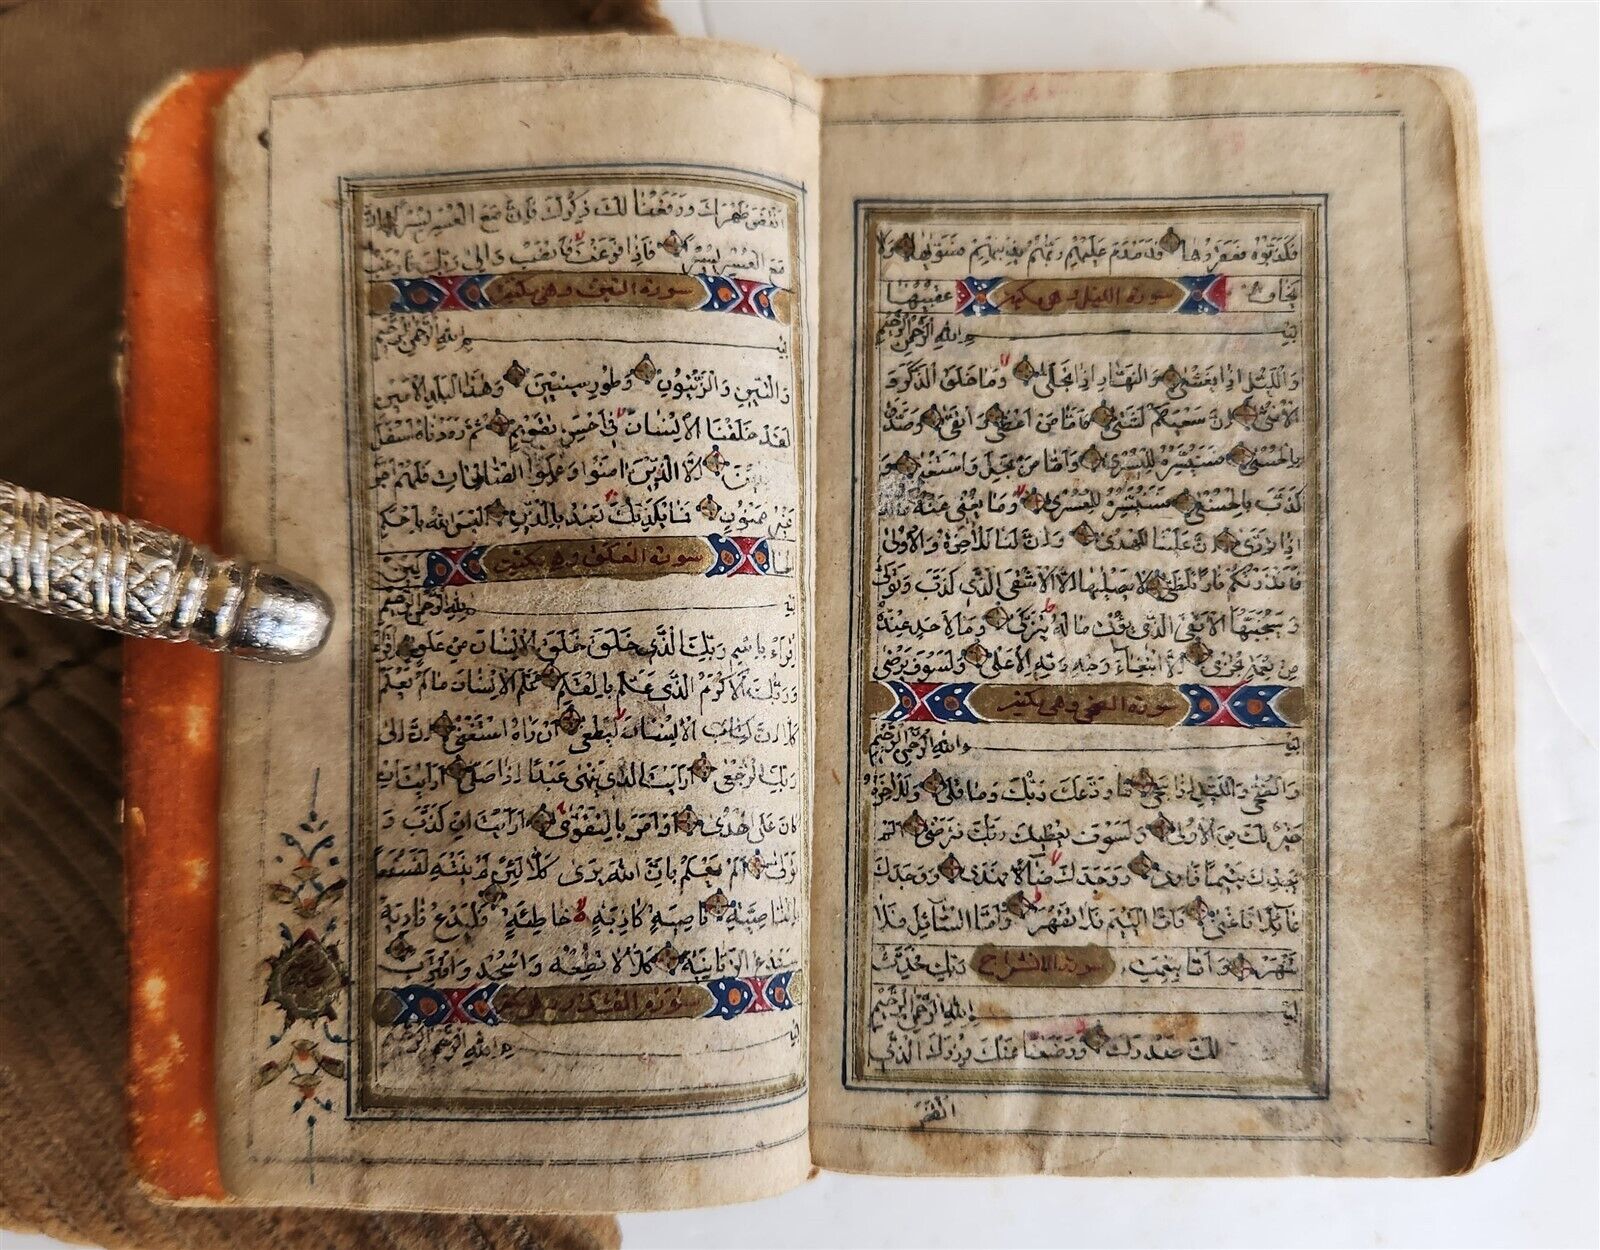 فكذبوه فعقروها فدمدم عليهم ربهم بذنبهم فسويها ولا
يخاف سورة الليل وهي مكية عقبيها
بسم الله الرحمن الرحيم
والليل اذا يغشى والنهار اذا تجلى وما خلق الذكر و
الانثى ان سعيكم لشتى فاما من اعطى واتقى وصدق
بالحسنى فسنيسره لليسرى واما من بخل واستغنى و
كذب بالحسنى فسنيسره للعسرى وما يغنى عنه ماله
اذا تردى ان علينا للهدى وان لنا للاخرة والاولى
فانذرتكم نارا تلظى لا يصليها الا الاشقى الذى كذب وتولى
وسيجنبها الاتقى الذى يؤتى ماله يتزكى وما لاحد عنده
من نعمة تجزى الا ابتغاء وجه ربه الاعلى ولسوف يرضى
سورة الضحى وهي مكية
بسم الله الرحمن الرحيم
والضحى والليل اذا سجى ما ودعك ربك وما قلى وللاخرة
خير لك من الاولى ولسوف يعطيك ربك فترضى الم
يجدك يتيما فاوى ووجدك ضالا فهدى ووجدك
عائلا فاغنى فاما اليتيم فلا تقهر واما السائل فلا
تنهر واما بنعمة سورة الانشراح ربك فحدث
بسم الله الرحمن الرحيم
لك صدرك ووضعنا عنك وزرك الذى
انقض
انقض ظهرك ورفعنا لك ذكرك فان مع العسر يسرا ان
مع العسر يسرا فاذا فرغت فانصب والى ربك فارغب
سورة التين وهي مكية
بسم الله الرحمن الرحيم
والتين والزيتون وطور سينين وهذا البلد الامين
لقد خلقنا الانسان فى احسن تقويم ثم رددناه اسفل
سافلين الا الذين امنوا وعملوا الصالحات فلهم اجر
غير ممنون فما يكذبك بعد بالدين اليس الله باحكم
الحا سورة العلق وهي مكية كمين
بسم الله الرحمن الرحيم
اقراء باسم ربك الذى خلق خلق الانسان من علق اقرا
وربك الاكرم الذى علم بالقلم علم الانسان ما لم يعلم
كلا ان الانسان ليطغى ان راه استغنى ان الى
ربك الرجعى ارايت الذى ينهى عبدا اذا صلى ارايت ان
كان على الهدى او امر بالتقوى ارايت ان كذب و
تولى الم يعلم بان الله يرى كلا لئن لم ينته لنسفعا
بالناصية ناصية كاذبة خاطئة فليدع ناديه
سندع الزبانية كلا لا تطعه واسجد واقترب
سورة القدر وهي مكية
بسم الله الرحمن الرحيم